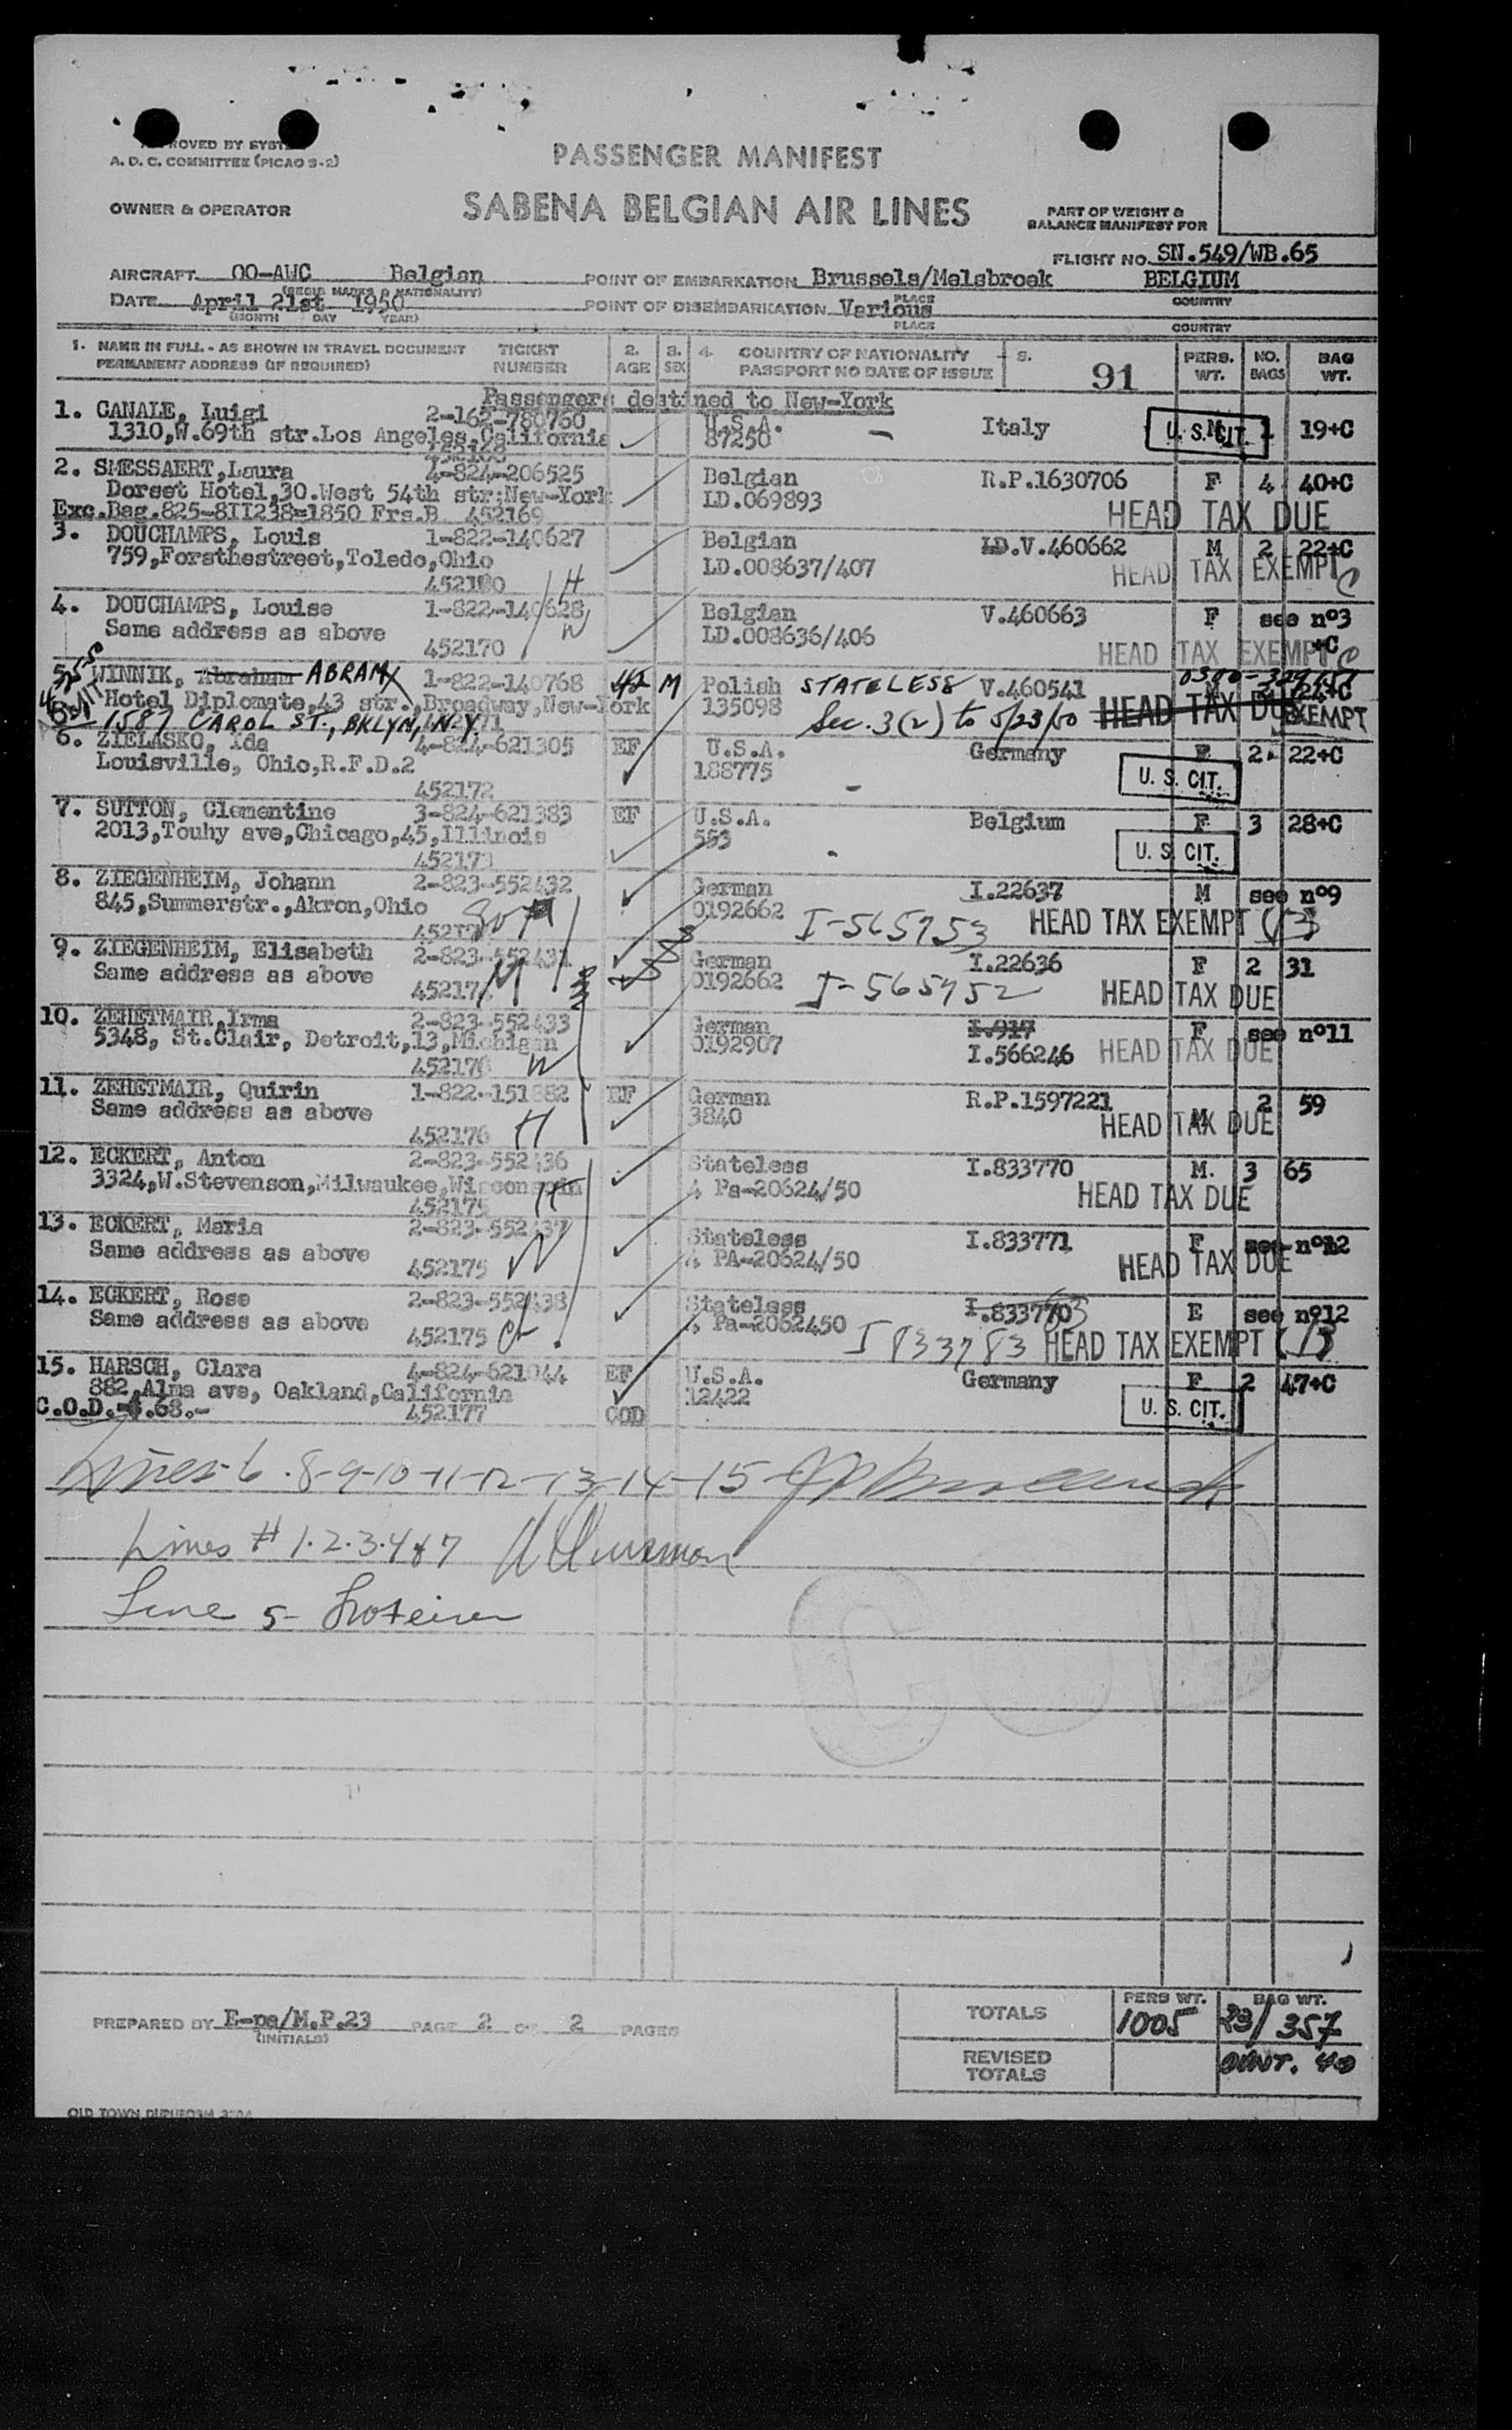 ROVED BY SYST
A. D. C. COMMITTEE (PICAO S-2)
PASSENGER MANIFEST
OWNER & OPERATOR
SABENA BELGIAN AIR LINES
PART OF WEIGHT &
BALANCE MANIFEST FOR
FLIGHT NO. SN.549/WB.65
AIRCRAFT OO-AWC Belgian POINT OF EMBARKATION Brussels/Melsbroek BELGIUM
(REGIS MARKS & NATIONALITY) PLACE COUNTRY
DATE April 21st 1950 POINT OF DISEMBARKATION Various
(MONTH DAY YEAR) PLACE COUNTRY
1. NAME IN FULL - AS SHOWN IN TRAVEL DOCUMENT TICKET 2. 3. 4. COUNTRY OF NATIONALITY 5. 91 PERS. NO. BAG
PERMANENT ADDRESS (IF REQUIRED) NUMBER AGE SEX PASSPORT NO DATE OF ISSUE WT. BAGS WT.
Passengers destined to New-York
1. CANALE, Luigi 2-162-780760 U.S.A. Italy U. S. CIT. 19+C
1310,W.69th str.Los Angeles,California 87250
2. SMESSAERT,Laura 4-824-206525 Belgian R.P.1630706 F 4 40+C
Dorset Hotel,30.West 54th str;New-York LD.069893
Exc.Bag.825-8II238=1850 Frs.B 452169 HEAD TAX DUE
3. DOUCHAMPS, Louis 1-822-140627 Belgian LD.V.460662 M 2 22+C
759,Forsthestreet,Toledo,Ohio LD.008637/407 HEAD TAX EXEMPT C
H
4. DOUCHAMPS, Louise 1-822-140628 Belgian V.460663 F see n°3
Same address as above W LD.008636/406 +C
452170 HEAD TAX EXEMPT C
5. WINNIK, Abraham ABRAM 1-822-140768 M Polish STATELESS V.460541 24+C
Hotel Diplomate,43 str.,Broadway,New-York 135098 Sec. 3(2) to 5/23/50 HEAD TAX DUE EXEMPT
1587 CAROL ST., BKLYN, N.Y.
6. ZIELASKO, Ida 4-824-621305 EF U.S.A. Germany F 2 22+C
Louisville, Ohio,R.F.D.2 188775 U. S. CIT.
452172
7. SUTTON, Clementine 3-824-621383 EF U.S.A. Belgium F 3 28+C
2013,Touhy ave,Chicago,45,Illinois 553 U. S. CIT.
452173
8. ZIEGENHEIM, Johann 2-823-552432 German I.22637 M see n°9
845,Summerstr.,Akron,Ohio 0192662 I-565953 HEAD TAX EXEMPT
9. ZIEGENHEIM, Elisabeth German I.22636 F 2 31
Same address as above 0192662 I-565952 HEAD TAX DUE
10. ZEHETMAIR,Irma 2-823-552433 German I.917 F see n°11
5348, St.Clair, Detroit,13,Michigan 0192907 I.566246 HEAD TAX DUE
452176 W
11. ZEHETMAIR, Quirin 1-822-151882 EF German R.P.1597221 M 2 59
Same address as above 3840 HEAD TAX DUE
452176 H
12. ECKERT, Anton 2-823-552436 Stateless I.833770 M. 3 65
3324,W.Stevenson,Milwaukee,Wisconsin Pa-20624/50 HEAD TAX DUE
452175 H
13. ECKERT, Maria 2-823-552437 Stateless I.833771 F see n°12
Same address as above PA-20624/50 HEAD TAX DUE
452175 W
14. ECKERT, Rose 2-823-552438 Stateless I.833770 E see n°12
Same address as above Pa-2062450
452175 I 833783 HEAD TAX EXEMPT
15. HARSCH, Clara 4-824-621044 EF U.S.A. Germany F 2 47+C
882,Alma ave, Oakland,California 12422 U. S. CIT.
452177 COD
Lines 6. 8-9-10-11-12-13-14-15
Lines # 1.2.3.4&7
Line 5-
PREPARED BY E-pa/M.P.23 PAGE 2 OF 2 PAGES
(INITIALS)
PERS WT. BAG WT.
TOTALS 1005 23/357
REVISED
TOTALS